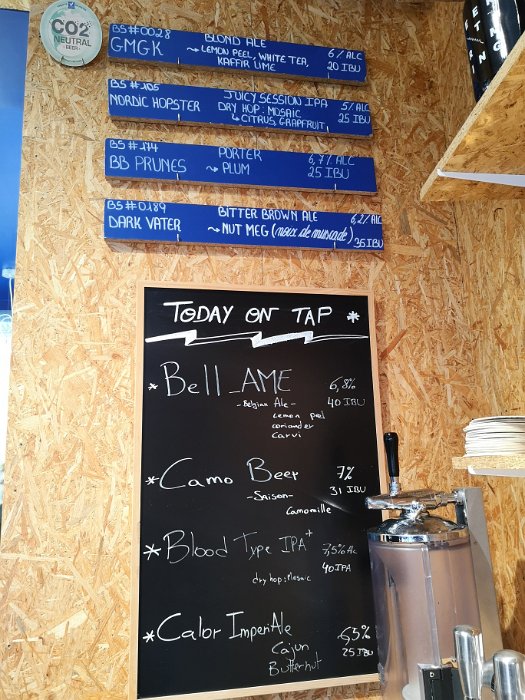 CO2
NEUTRAL
BEER
BS#0028 BLOND ALE 6%ALC
GMGK ↝LEMON PEEL, WHITE TEA, 20 IBU
KAFFIR LIME
BS#105 JUICY SESSION IPA 5%ALC
NORDIC HOPSTER DRY HOP: MOSAIC 25 IBU
↳CITRUS, GRAPEFRUIT
BS#174 PORTER 6,7%ALC
BB PRUNES ↝ PLUM 25 IBU
BS#0189 BITTER BROWN ALE 6,2%ALC
DARK VATER ↝ NUT MEG (noix de muscade) 35 IBU
TODAY ON TAP *
* Bell_AME 6,8%
-Belgian Ale- 40 IBU
Lemon peel
coriander
carvi
* Camo Beer 7%
-Saison- 31 IBU
Camomille
* Blood Type IPA+ 7,5%Alc
dry hop: Mosaic 40 IPA
* Calor ImperiAle 6,5%
Cajun 25 IBU
Butternut